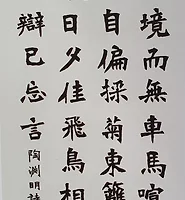 境而無車馬喧
自偏採菊東籬
日夕佳飛鳥相
辯已忘言陶淵明詩